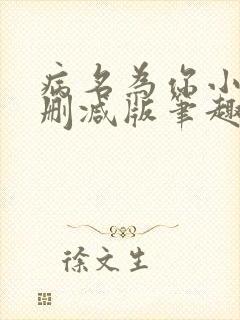 病名为你小
删减版笔趣
徐文生